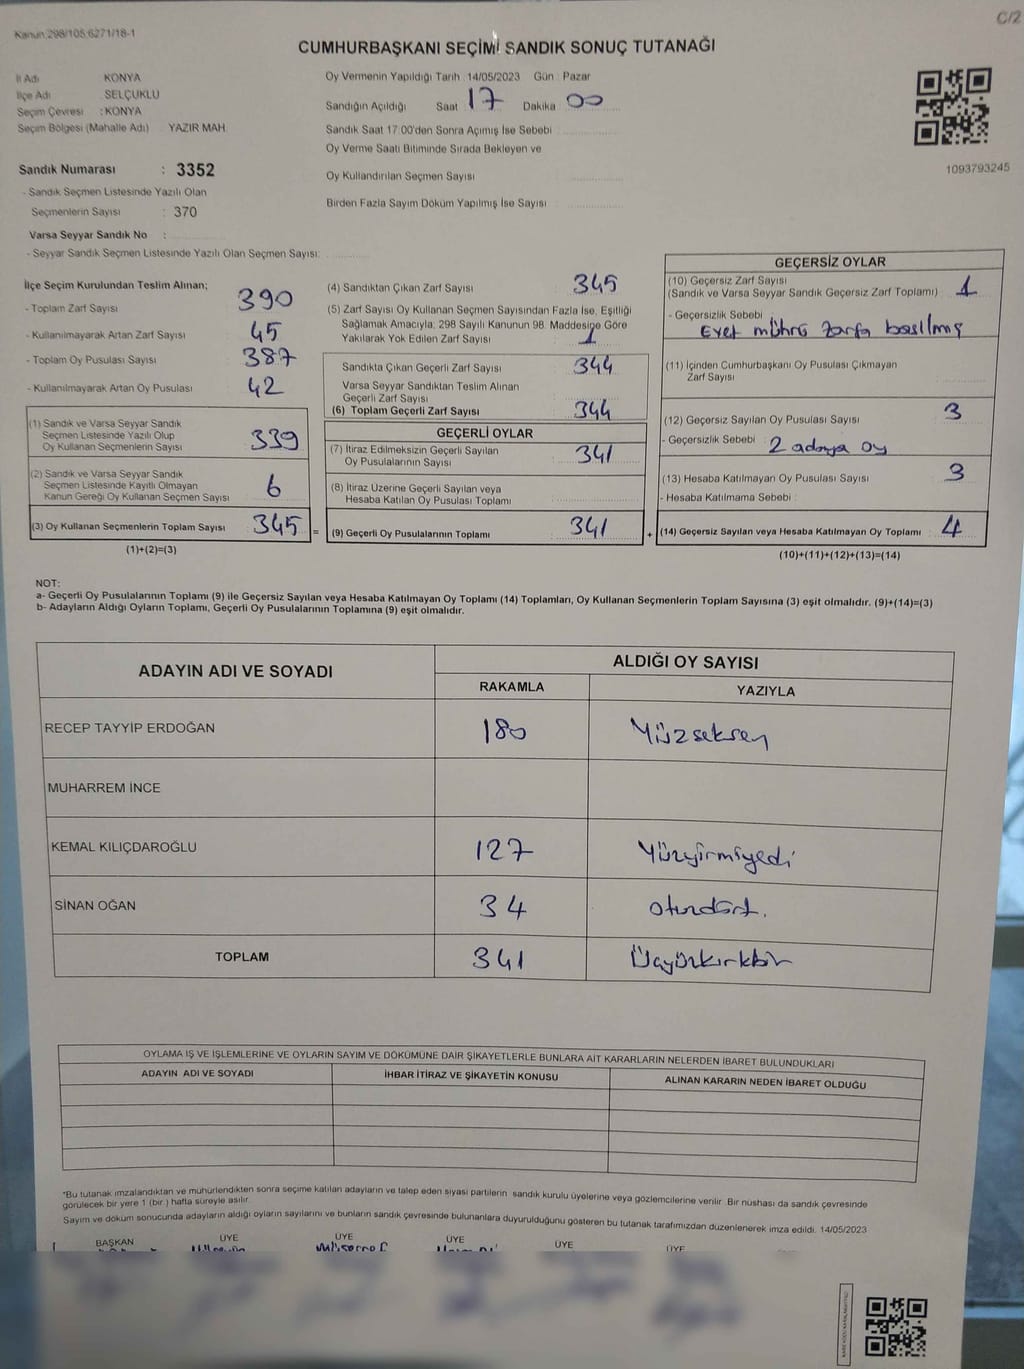 C/2
Kanun:298/105;6271/18-1
CUMHURBAŞKANI SEÇİMİ SANDIK SONUÇ TUTANAĞI
İl Adı KONYA
İlçe Adı SELÇUKLU
Seçim Çevresi : KONYA
Seçim Bölgesi (Mahalle Adı) YAZIR MAH.
Oy Vermenin Yapıldığı Tarih : 14/05/2023 Gün : Pazar
Sandığın Açıldığı Saat 17 Dakika 00
Sandık Saat 17.00'den Sonra Açımış İse Sebebi
Oy Verme Saati Bitiminde Sırada Bekleyen ve
Oy Kullandırılan Seçmen Sayısı
Birden Fazla Sayım Döküm Yapılmış İse Sayısı
1093793245
Sandık Numarası : 3352
- Sandık Seçmen Listesinde Yazılı Olan
Seçmenlerin Sayısı : 370
Varsa Seyyar Sandık No :
- Seyyar Sandık Seçmen Listesinde Yazılı Olan Seçmen Sayısı:
İlçe Seçim Kurulundan Teslim Alınan;
- Toplam Zarf Sayısı 390
- Kullanılmayarak Artan Zarf Sayısı 45
- Toplam Oy Pusulası Sayısı 387
- Kullanılmayarak Artan Oy Pusulası 42
(1) Sandık ve Varsa Seyyar Sandık
Seçmen Listesinde Yazılı Olup
Oy Kullanan Seçmenlerin Sayısı 339
(2) Sandık ve Varsa Seyyar Sandık
Seçmen Listesinde Kayıtlı Olmayan
Kanun Gereği Oy Kullanan Seçmen Sayısı 6
(3) Oy Kullanan Seçmenlerin Toplam Sayısı 345 =
(1)+(2)=(3)
(4) Sandıktan Çıkan Zarf Sayısı 345
(5) Zarf Sayısı Oy Kullanan Seçmen Sayısından Fazla İse, Eşitliği
Sağlamak Amacıyla; 298 Sayılı Kanunun 98. Maddesine Göre
Yakılarak Yok Edilen Zarf Sayısı 1
Sandıkta Çıkan Geçerli Zarf Sayısı 344
Varsa Seyyar Sandıktan Teslim Alınan
Geçerli Zarf Sayısı
(6) Toplam Geçerli Zarf Sayısı 344
GEÇERLİ OYLAR
(7) İtiraz Edilmeksizin Geçerli Sayılan
Oy Pusulalarının Sayısı 341
(8) İtiraz Üzerine Geçerli Sayılan veya
Hesaba Katılan Oy Pusulası Toplamı
(9) Geçerli Oy Pusulalarının Toplamı 341 +
GEÇERSİZ OYLAR
(10) Geçersiz Zarf Sayısı
(Sandık ve Varsa Seyyar Sandık Geçersiz Zarf Toplamı) 1
- Geçersizlik Sebebi
Evet mührü zarfa basılmış
(11) İçinden Cumhurbaşkanı Oy Pusulası Çıkmayan
Zarf Sayısı
(12) Geçersiz Sayılan Oy Pusulası Sayısı 3
- Geçersizlik Sebebi : 2 adaya oy
(13) Hesaba Katılmayan Oy Pusulası Sayısı 3
- Hesaba Katılmama Sebebi :
(14) Geçersiz Sayılan veya Hesaba Katılmayan Oy Toplamı 4
(10)+(11)+(12)+(13)=(14)
NOT:
a- Geçerli Oy Pusulalarının Toplamı (9) ile Geçersiz Sayılan veya Hesaba Katılmayan Oy Toplamı (14) Toplamları, Oy Kullanan Seçmenlerin Toplam Sayısına (3) eşit olmalıdır. (9)+(14)=(3)
b- Adayların Aldığı Oyların Toplamı, Geçerli Oy Pusulalarının Toplamına (9) eşit olmalıdır.
ADAYIN ADI VE SOYADI
ALDIĞI OY SAYISI
RAKAMLA YAZIYLA
RECEP TAYYİP ERDOĞAN 180 Yüzseksen
MUHARREM İNCE
KEMAL KILIÇDAROĞLU 127 Yüzyirmiyedi
SİNAN OĞAN 34 otuzdört.
TOPLAM 341 Üçyüzkırkbir
OYLAMA İŞ VE İŞLEMLERİNE VE OYLARIN SAYIM VE DÖKÜMÜNE DAİR ŞİKAYETLERLE BUNLARA AİT KARARLARIN NELERDEN İBARET BULUNDUKLARI
ADAYIN ADI VE SOYADI İHBAR İTİRAZ VE ŞİKAYETİN KONUSU ALINAN KARARIN NEDEN İBARET OLDUĞU
*Bu tutanak imzalandıktan ve mühürlendikten sonra seçime katılan adayların ve talep eden siyasi partilerin sandık kurulu üyelerine veya gözlemcilerine verilir. Bir nüshası da sandık çevresinde
görülecek bir yere 1 (bir ) hafta süreyle asılır.
Sayım ve döküm sonucunda adayların aldığı oyların sayılarını ve bunların sandık çevresinde bulunanlara duyurulduğunu gösteren bu tutanak tarafımızdan düzenlenerek imza edildi. 14/05/2023
BAŞKAN ÜYE ÜYE ÜYE ÜYE ÜYE